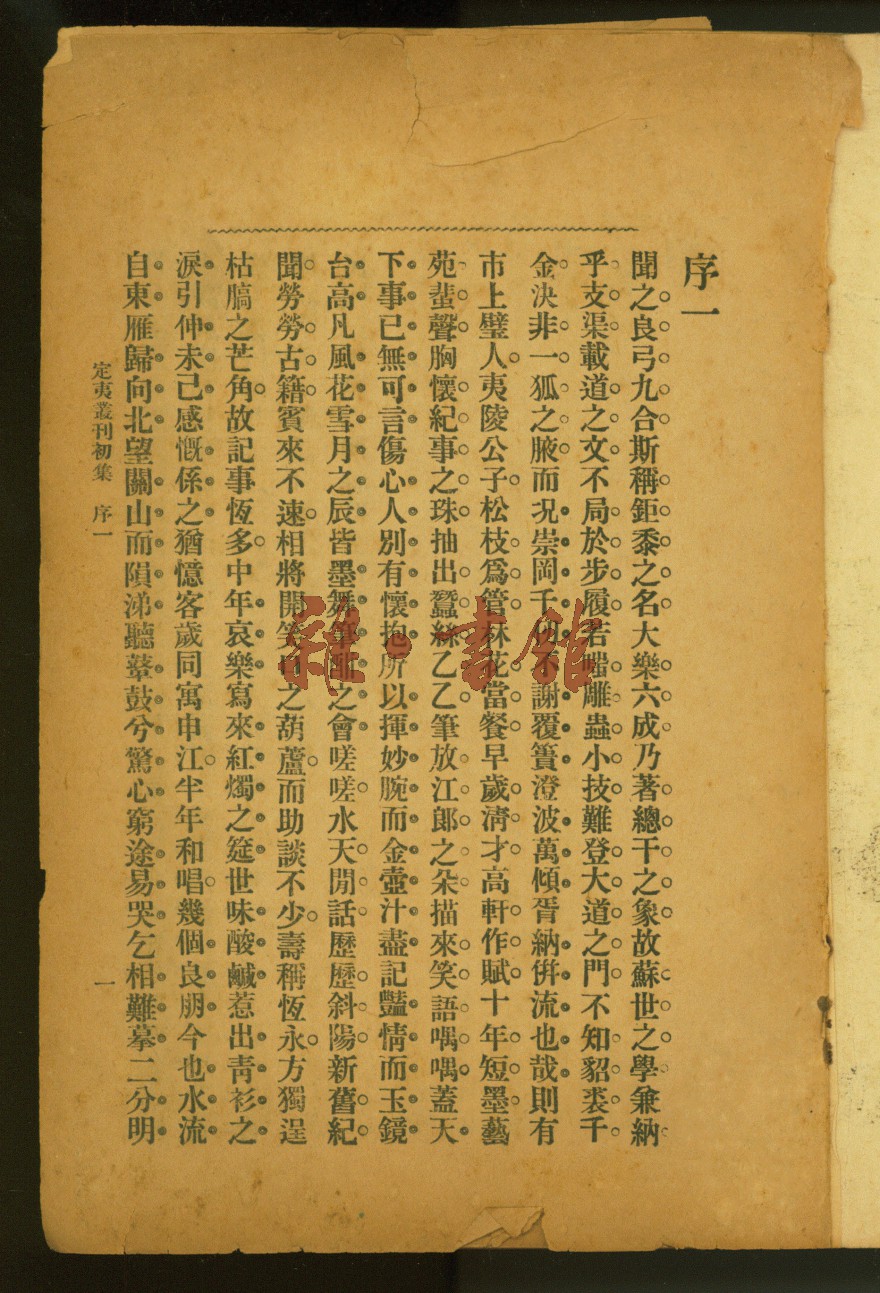 序一
聞之良弓九合斯稱鉅黍之名大樂六成乃著總干之象故蘇世之學兼納
乎支渠載道之文不局於步履若喘雕蟲小技難登大道之門不知貂裘千
金決非一狐之腋而況崇岡千仞不謝覆簣澄波萬傾胥納併流也哉則有
市上璧人夷陵公子松枝爲管秫花當餐早歲淸才高軒作賦十年短墨藝
苑蜚聲胸懷紀事之珠抽出蠶絲乙乙筆放江郎之朵描來笑語喁喁蓋天
下事已無可言傷心人別有懷抱所以揮妙腕而金壺汁盡記豔情而玉鏡
台高凡風花雪月之辰皆墨舞筆酣之會嗟嗟水天閒話歷歷斜陽新舊紀
聞勞勞古籍賓來不速相將開笑口之葫蘆而助談不少壽稱恆永方獨逞
枯腸之芒角故記事恆多中年哀樂寫來紅燭之筵世味酸鹹惹出靑衫之
淚引伸未已感慨係之猶憶客歲同寓申江半年和唱幾個良朋今也水流
自東雁歸向北望關山而隕涕聽鼙鼓兮驚心窮途易哭乞相難摹二分明
定夷叢刊初集 序一
一
雜·書館